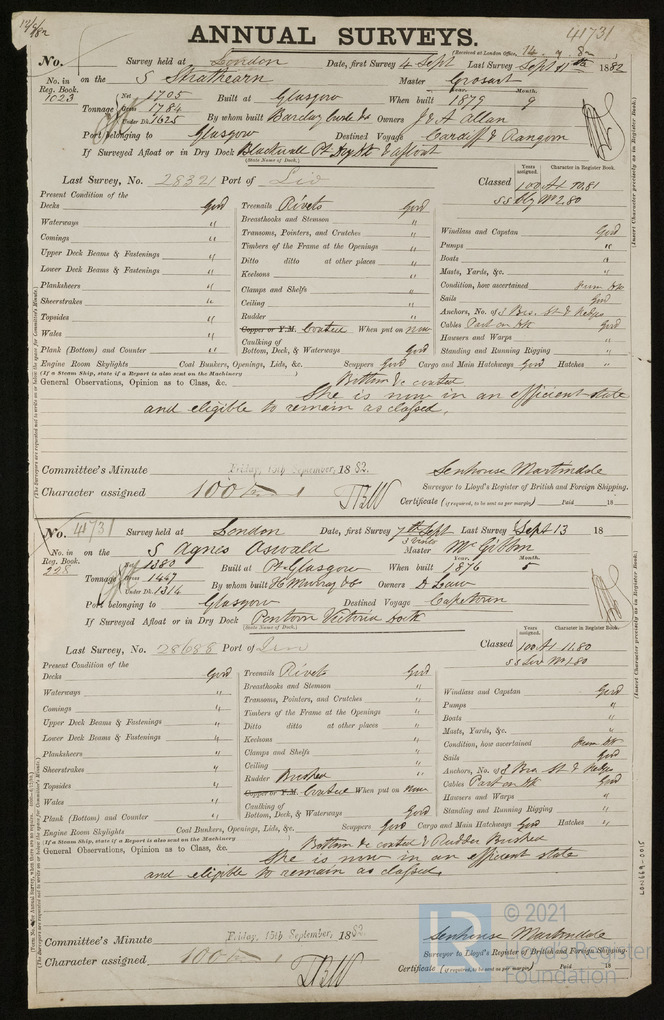 ANNUAL SURVEYS.
41731
(Received at London Office,
No. Survey held at London Date, first Survey 4 Sept Last Survey Sept 11th 1882
No. in Reg. Book. 1023 on the S Strathearn Master Crosart
Tonnage Net 1705 Gross 1784 Under Dk. 1625 Built at Glasgow When built Year. 1879 Month. 9
By whom built Barclay Curle & Co Owners J & A Allan
Port belonging to Glasgow Destined Voyage Cardiff & Rangoon
If Surveyed Afloat or in Dry Dock Blackwall Pt Dry Dk & afloat
(State Name of Dock.)
Last Survey, No. 28321 Port of Liv
Years assigned. Character in Register Book.
Classed 100 A1 10.81
(Insert Character precisely as in Register Book.)
Present Condition of the
Decks Good Treenails Rivets Good
Waterways " Breasthooks and Stemson "
Comings " Transoms, Pointers, and Crutches " Windlass and Capstan Good
Upper Deck Beams & Fastenings " Timbers of the Frame at the Openings " Pumps "
Lower Deck Beams & Fastenings " Ditto ditto at other places " Boats "
Planksheers " Keelsons " Masts, Yards, &c. "
Sheerstrakes " Clamps and Shelfs " Condition, how ascertained from Dk
Topsides " Ceiling " Sails Good
Wales " Rudder " Anchors, No. of 3 Brs. St & Kedges
Copper or Y.M. Coated When put on now Cables Part on Dk Good
Plank (Bottom) and Counter " Caulking of Bottom, Deck, & Waterways Good Hawsers and Warps "
Standing and Running Rigging "
Engine Room Skylights Coal Bunkers, Openings, Lids, &c. Scuppers Good Cargo and Main Hatchways Good Hatches "
(If a Steam Ship, state if a Report is also sent on the Machinery )
General Observations, Opinion as to Class, &c. Bottom &c coated
She is now in an efficient state
and eligible to remain as classed.
Committee's Minute Friday, 15th September, 1882. Senhouse Martindale
Surveyor to Lloyd's Register of British and Foreign Shipping.
Character assigned 100 A 1
Certificate (if required, to be sent as per margin) Paid 18
No. 41731 Survey held at London Date, first Survey 7th Sept Last Survey Sept 13 18
3 Visits
No. in Reg. Book. 228 on the S Agnes Oswald Master McGibbon
Tonnage Net 1380 Gross 1447 Under Dk. 1314 Built at Pt Glasgow When built Year. 1876 Month. 5
By whom built H Murray & Co Owners D Law
Port belonging to Glasgow Destined Voyage Capetown
If Surveyed Afloat or in Dry Dock Pontoon Victoria Dock
(State Name of Dock.)
Last Survey, No. 28688 Port of
Years assigned. Character in Register Book.
Classed 100 A1 11.80
SS Liv No 1.80
(Insert Character precisely as in Register Book.)
Present Condition of the
Decks Good Treenails Rivets Good
Waterways " Breasthooks and Stemson " Windlass and Capstan Good
Comings " Transoms, Pointers, and Crutches " Pumps "
Upper Deck Beams & Fastenings " Timbers of the Frame at the Openings " Boats "
Lower Deck Beams & Fastenings " Ditto ditto at other places " Masts, Yards, &c. "
Planksheers " Keelsons " Condition, how ascertained from Dk
Sheerstrakes " Clamps and Shelfs " Sails Good
Topsides " Ceiling " Anchors, No. of 3 Brs St & Kedges
Wales " Rudder Bushed Cables Part on Dk Good
Copper or Y.M. Coated When put on now Hawsers and Warps "
Plank (Bottom) and Counter " Caulking of Bottom, Deck, & Waterways Good Standing and Running Rigging "
Engine Room Skylights Coal Bunkers, Openings, Lids, &c. Scuppers Good Cargo and Main Hatchways Good Hatches "
(If a Steam Ship, state if a Report is also sent on the Machinery )
General Observations, Opinion as to Class, &c. Bottom &c coated & Rudder Bushed
She is now in an efficient state
and eligible to remain as classed.
Committee's Minute Friday, 15th September, 1882. Senhouse Martindale
Surveyor to Lloyd's Register of British and Foreign Shipping.
Character assigned 100 A
Certificate (if required, to be sent as per margin) Paid 18
LON669-0015
LR © 2021
Lloyd's Register
Foundation